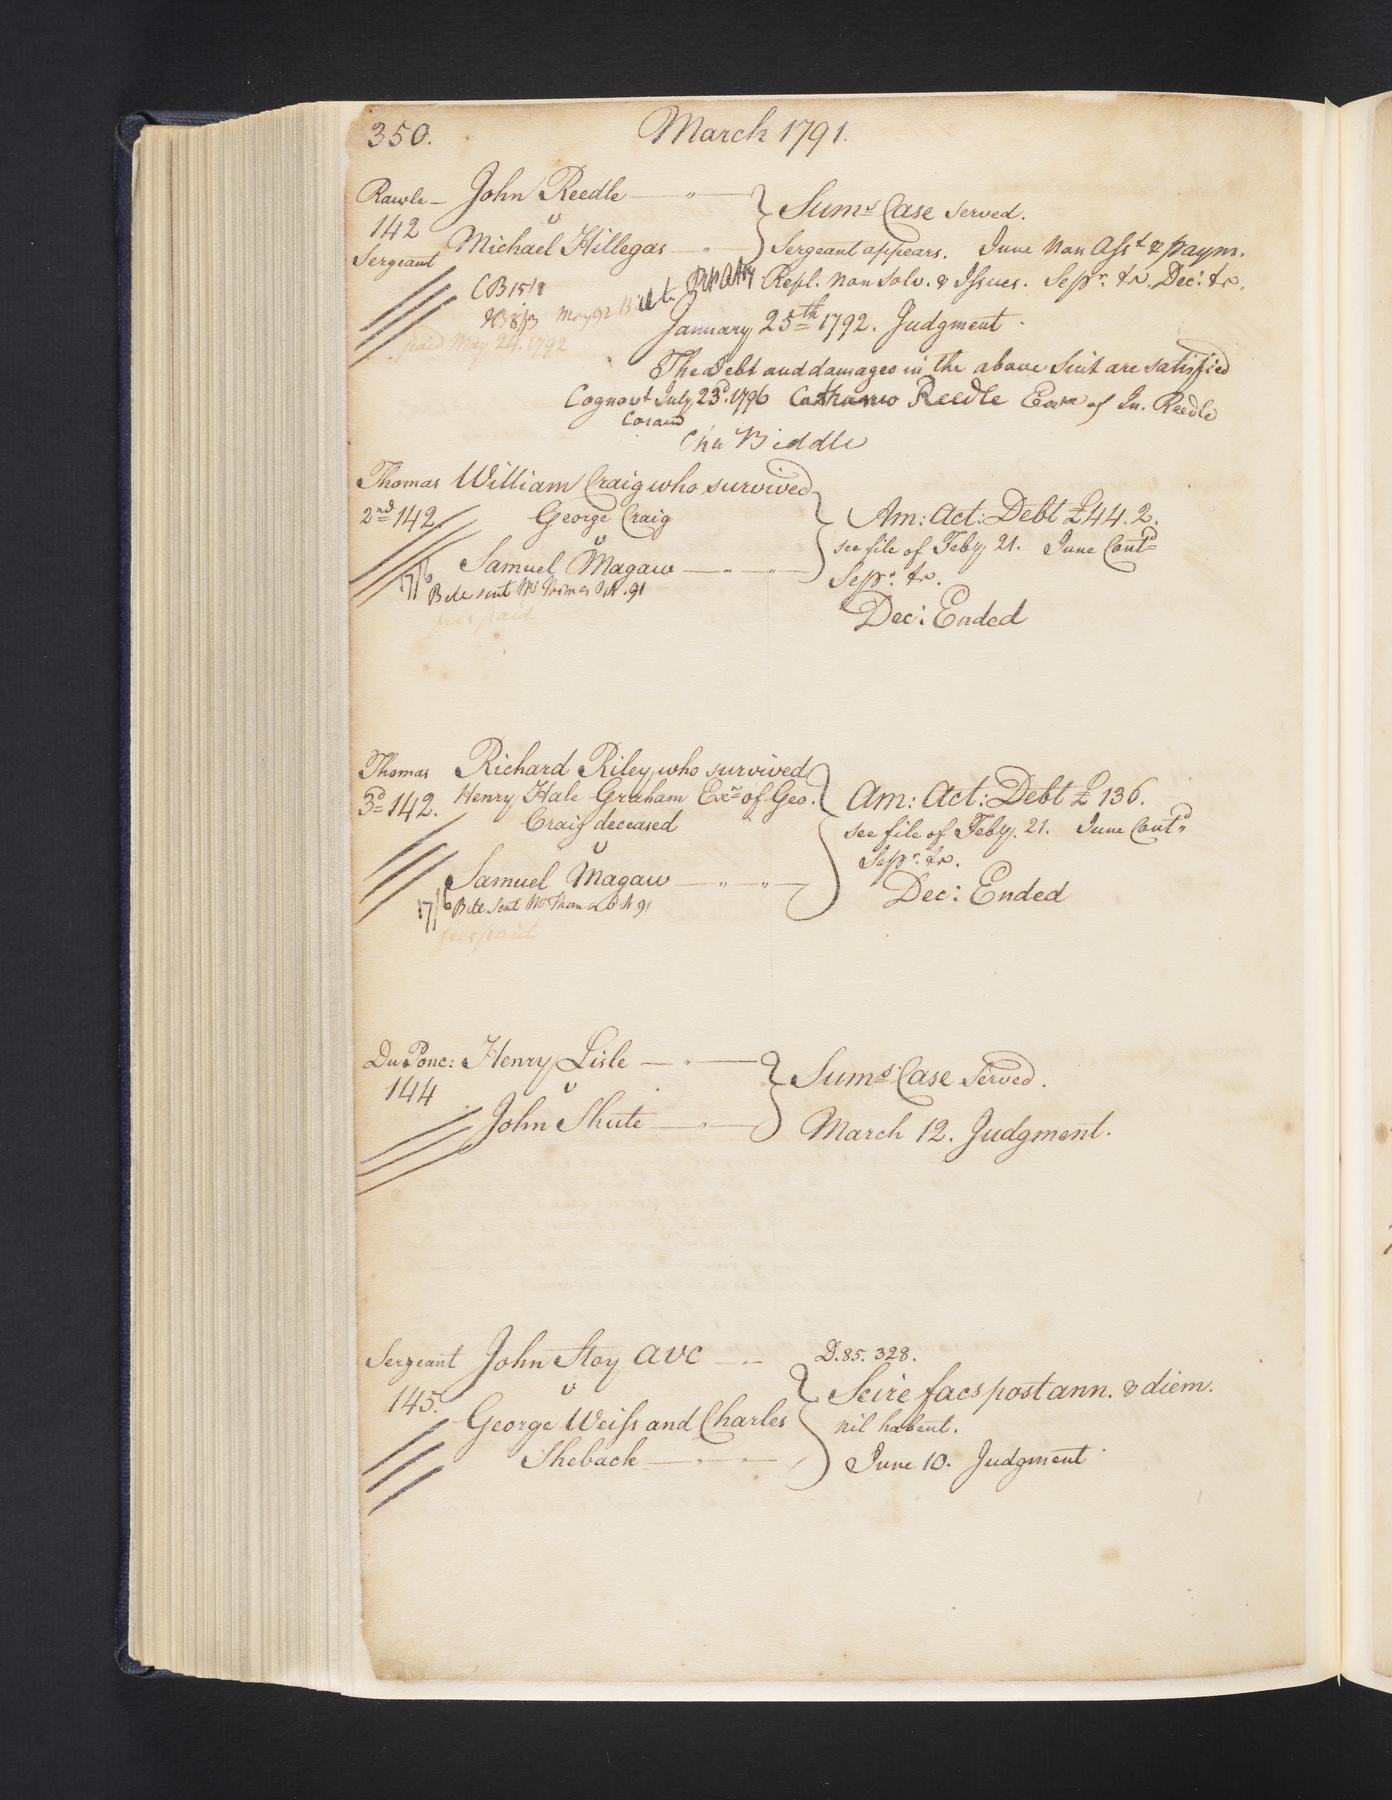 350. March 1791.
Rawle — John Reedle — " —
142 v Sum.s Case served.
Sergeant Michael Hillegas — " — Sergeant appears. June Non Ass.t & paym.
CB 15/8 Repl. non Solv. & Issues. Sep.r &r. Dec.r &r.
May 92 January 25th 1792. Judgment.
paid May 24. 1792
The Debt and damages in the above Suit are satisfied
Cognovt July 23d. 1796 Reedle of Jn. Reedle
Coram
Cha Biddle
Thomas William Craig who survived
2nd 142. George Craig Am: Act: Debt £44.2.
v see file of Feby. 21. June Cont.d
Samuel Magaw — " — " — Sepr. &r.
17/6 Bill sent Mr Thomas 91
fees paid Dec: Ended
Thomas Richard Riley who survived
3d 142. Henry Hale Graham Exr. of Geo. Am: Act: Debt £136.
Craig deceased see file of Feby. 21. June Cont.d
v Sepr. &r.
Samuel Magaw — " — " — Dec: Ended
17/6 Bill sent Mr Thomas 91
fees paid
Du Ponc: Henry Lisle — " — Sum.s Case Served.
144 v
John Shute — " — March 12. Judgment.
Sergeant John Stoy avc — .. D. 85. 328.
145. v Scire facs post ann. & diem.
George Weiss and Charles nil habent.
Sheback — " — " June 10. Judgment